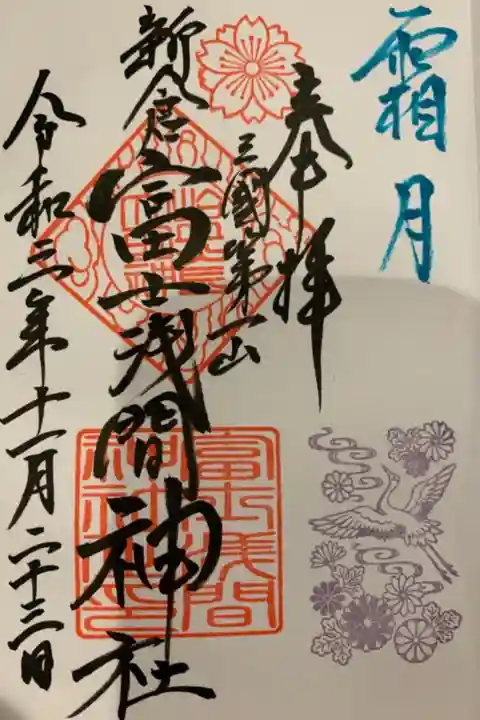 霜月
奉拝
三國第一山
新倉冨士浅間神社
富士浅間神社
令和三年十一月二十三日